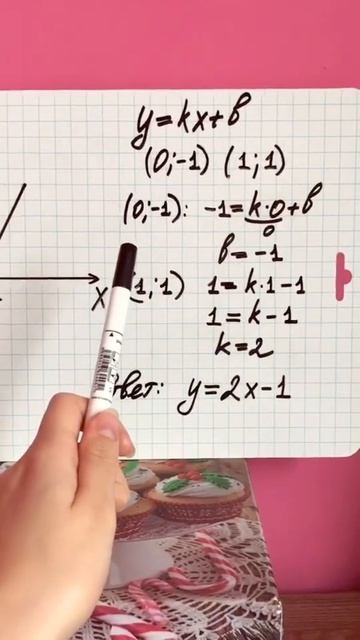 y=kx+b
(0;-1) (1;1)
(0;-1): -1=k·0+b
0
b=-1
X (1;1) 1=k·1-1
1=k-1
k=2
y=2x-1